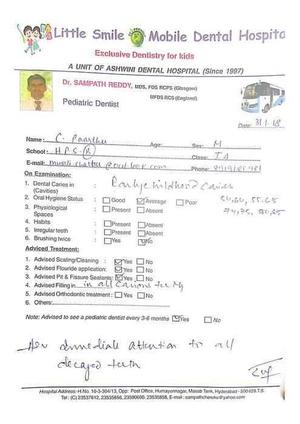 Little Smile Mobile Dental Hospital
Exclusive Dentistry for kids
A UNIT OF ASHWINI DENTAL HOSPITAL (Since 1997)
Dr. SAMPATH REDDY, MDS, FDS RCPS (Glasgow)
MFDS RCS (England)
Pediatric Dentist
Date:
Name: C. Age: Sex: M
School: H P S (R) Class: I A
E-mail: Phone:
On Examination:
1. Dental Caries in (Cavities) : Early childhood Caries
2. Oral Hygiene Status : Good Average Poor
3. Physiological Spaces : Present Absent
4. Habits : Present Absent
5. Irregular teeth : Present Absent
6. Brushing twice : Yes No
Advised Treatment:
1. Advised Scaling/Cleaning : Yes No
2. Advised Flouride application: Yes No
3. Advised Pit & Fissure Sealants: Yes No
4. Advised Filling in all Carious teeth
5. Advised Orthodontic treatment : Yes No
6. Others:
Note: Advised to see a pediatric dentist every 3-6 months Yes No
Adv immediate attention to all
decayed teeth
Hospital Address: H.No. 10-3-304/13, Opp: Post Office, Humayunnagar, Masab Tank, Hyderabad - 500428.T.S.
Tel: (C) 23537612, 23535656, 23590600, 23535658, E-mail: sampathcheruku@yahoo.com